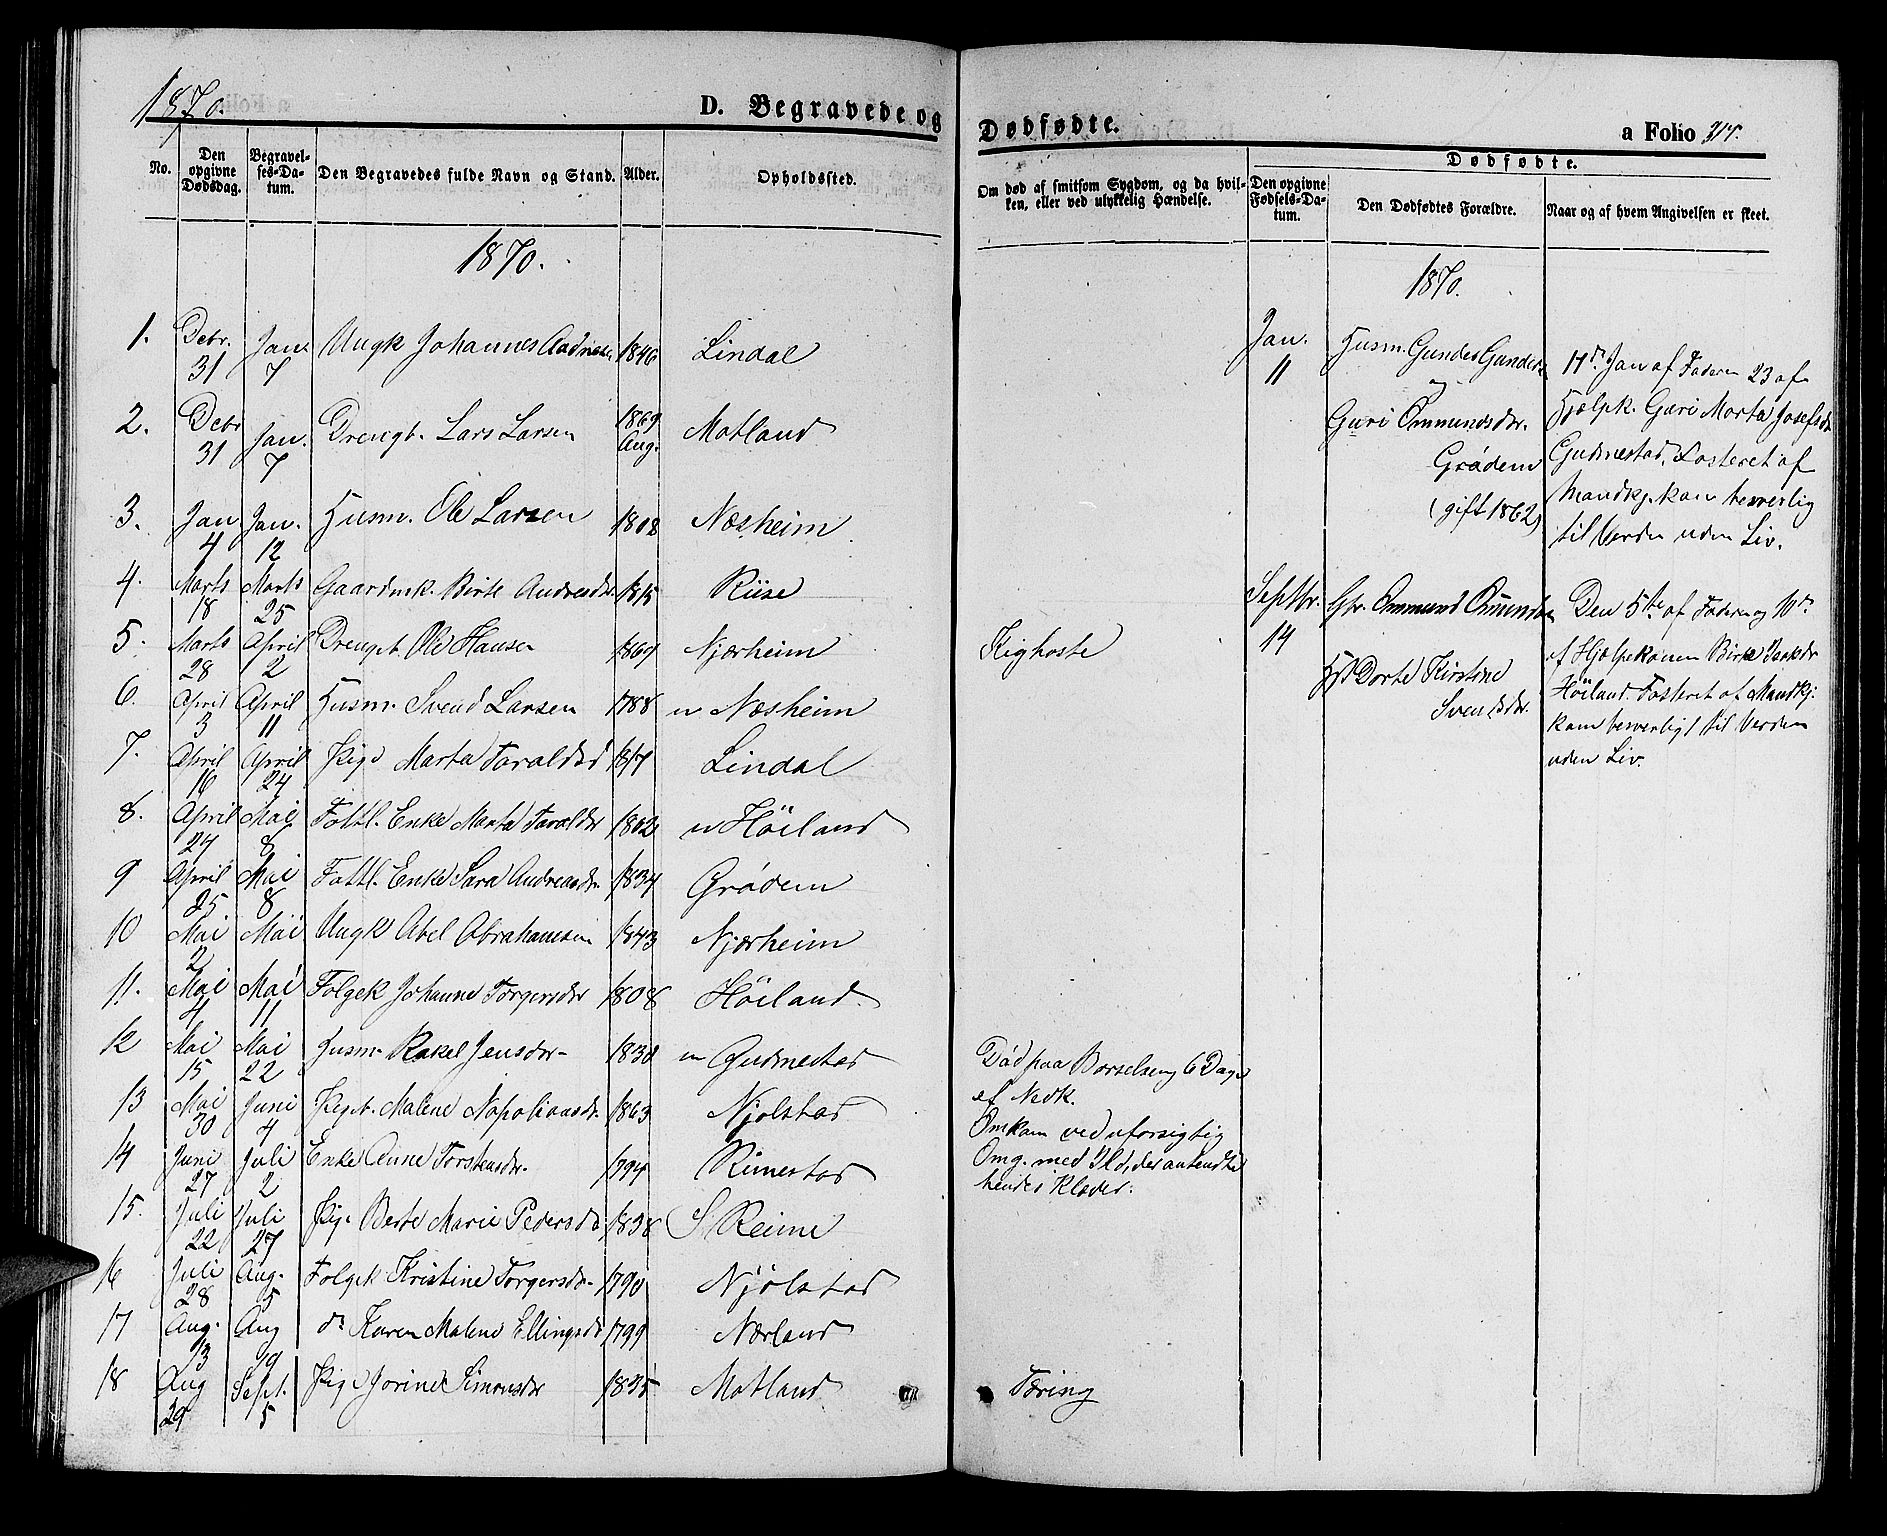 1870.
D. Begravede og
No.
Den opgivne Dødsdag.
Begravelses-Datum.
Den Begravedes fulde Navn og Stand.
Alder.
Opholdssted.
1870.
1. Debr. 31 Jan. 7 Ungk Johannes Aadnesen 1846 Lindal
2. Debr 31 Jan. 7 Drengb. Lars Larsen 1869 Aug. Motland
3. Jan. 4 Jan. 12 Husm. Ole Larsen 1808 Næsheim
4. Marts 18 Marts 25 Gaardmk. Birte Andreasdr. 1815 Riise
5. Marts 28 April 2 Drengb. Ole Hansen 1869 Njærheim
6. April 3 April 11 Husm. Svend Larsen 1788 u Næsheim
7. April 16 April 24 Pige Marta Taraldsd Lindal
8. April 29 Mai 8 Fattl. Enke Marta Taraldsdr 1802 u Höiland
9 April 25 Mai 8 Fattl. Enke Sara Andreasdr. 1834 Grödem
10 Mai 2 Mai Ungk Abel Abrahamsen 1843 Njærheim
11. Mai 4 Mai 11 Folgek Johanne Torgersdr 1808 Höiland
12 Mai 15 Mai 22 Husm. Rakel Jensdr 1830 u Gudmestad
13 Mai 30 Juni 4 Pigeb. Malene Napoliansdr. 1863 Njolstad
14 Juni 27 Juli 2 Enke Anne Torstensdr. 1794 Rimestad
15. Juli 22 Juli 27 Pige Berte Marie Pedersd 1838 S Reime
16 Juli 28 Aug. 5 Folgek Kristine Torgersdr 1790 Njölstad
17 Aug. 13 Aug 19 do Karen Malene Ellingsd 1799 Nærland
18 Aug 29 Sept. 5 Pige Jorine Simonsdr 1835 Motland
Dødfødte.
a Folio 214.
Om død af smitsom Sygdom, og da hvil-
ken, eller ved ulykkelig Hændelse.
Dødfødte.
Den opgivne Fødsels-Datum.
Den Dødfødtes Forældre.
Naar og af hvem Angivelsen er skeet.
1870.
Kighoste
Död paa Barselseng 6 Dage
ef Nedk.
Omkom ved uforsigtig
Omg. med Ild, der antendte
hendes Klæder.
Tæring
Jan. 11
Husm. Gunder Gunders
og
Guri Ommundsdr.
Grödem
(gift 1862)
11te Jan af Faderen 23 af
Hjælpk. Guri Marta Josefsdr
Gudmestad. Fosteret af
Mandkj. kom besverlig
til Verden uden Liv.
Septbr. 14
Gbr. Ommund Omundsen
Hst Dorte Kirstine
Svendsdr.
Den 5te af Faderen og 10de
af Hjælpekonen Birte Isaksdr
Höiland. Fosteret af Mandkj.
kom besverligt til Verden
uden Liv.